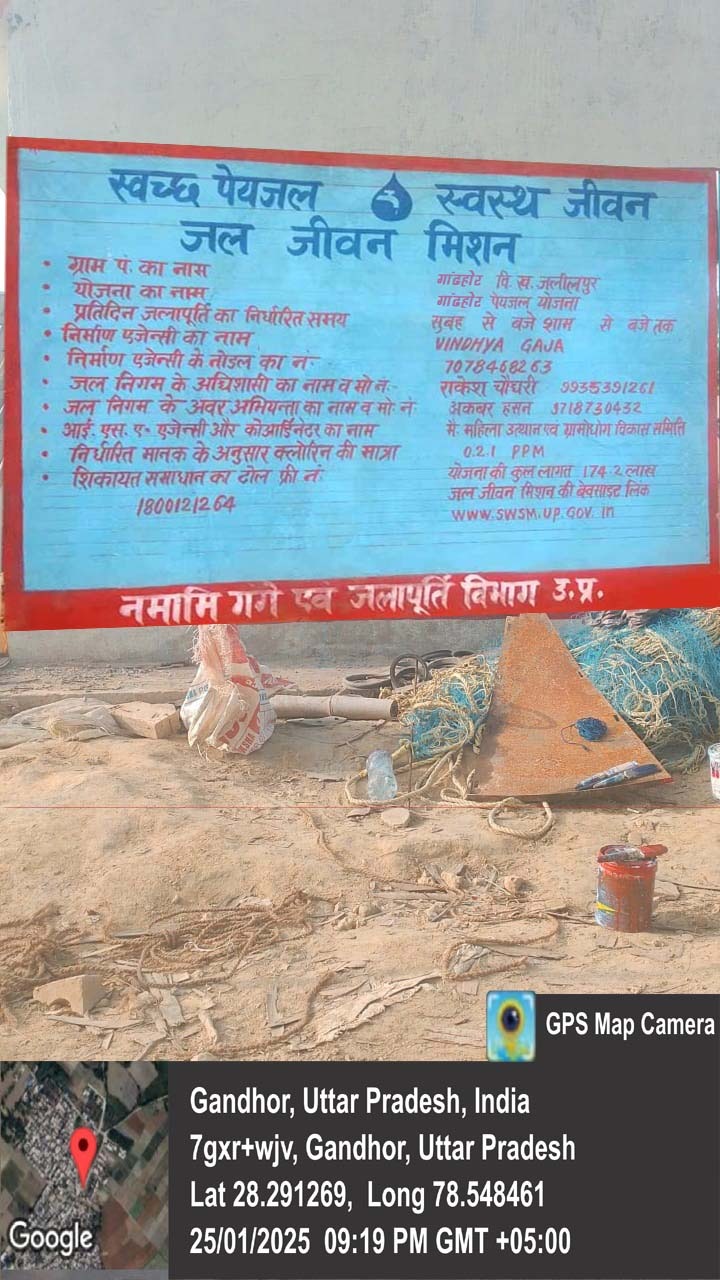 स्वच्छ पेयजल स्वस्थ जीवन
जल जीवन मिशन
• ग्राम पं. का नाम गांदहोट वि. ख. जलीलपुर
• योजना का नाम गांदहोट पेयजल योजना
• प्रतिदिन जलापूर्ति का निर्धारित समय सुबह से बजे शाम से बजे तक
• निर्माण एजेन्सी का नाम VINDHYA GAJA
• निर्माण एजेन्सी के नोडल का नं 7078468263
• जल निगम के अधिशासी का नाम व मो नं:- राकेश चौधरी 9935391261
• जल निगम के अवर अभियन्ता का नाम व मो. नं अकबर हसन 9718730432
• आई. एस. ए. एजेन्सी और कोआर्डिनेटर का नाम मै. महिला उत्थान एवं ग्रामोधोग विकास समिति
• निर्धारित मानक के अनुसार क्लोरिन की मात्रा 0.21 PPM
• शिकायत समाधान का टोल फ्री नं. योजना की कुल लागत 174.2 लाख
1800121264 जल जीवन मिशन की वेबसाइट लिंक
www.SWSM.UP.GOV.in
नमामि गंगे एवं जलापूर्ति विभाग उ.प्र.
GPS Map Camera
Gandhor, Uttar Pradesh, India
7gxr+wjv, Gandhor, Uttar Pradesh
Lat 28.291269, Long 78.548461
25/01/2025 09:19 PM GMT +05:00
Google